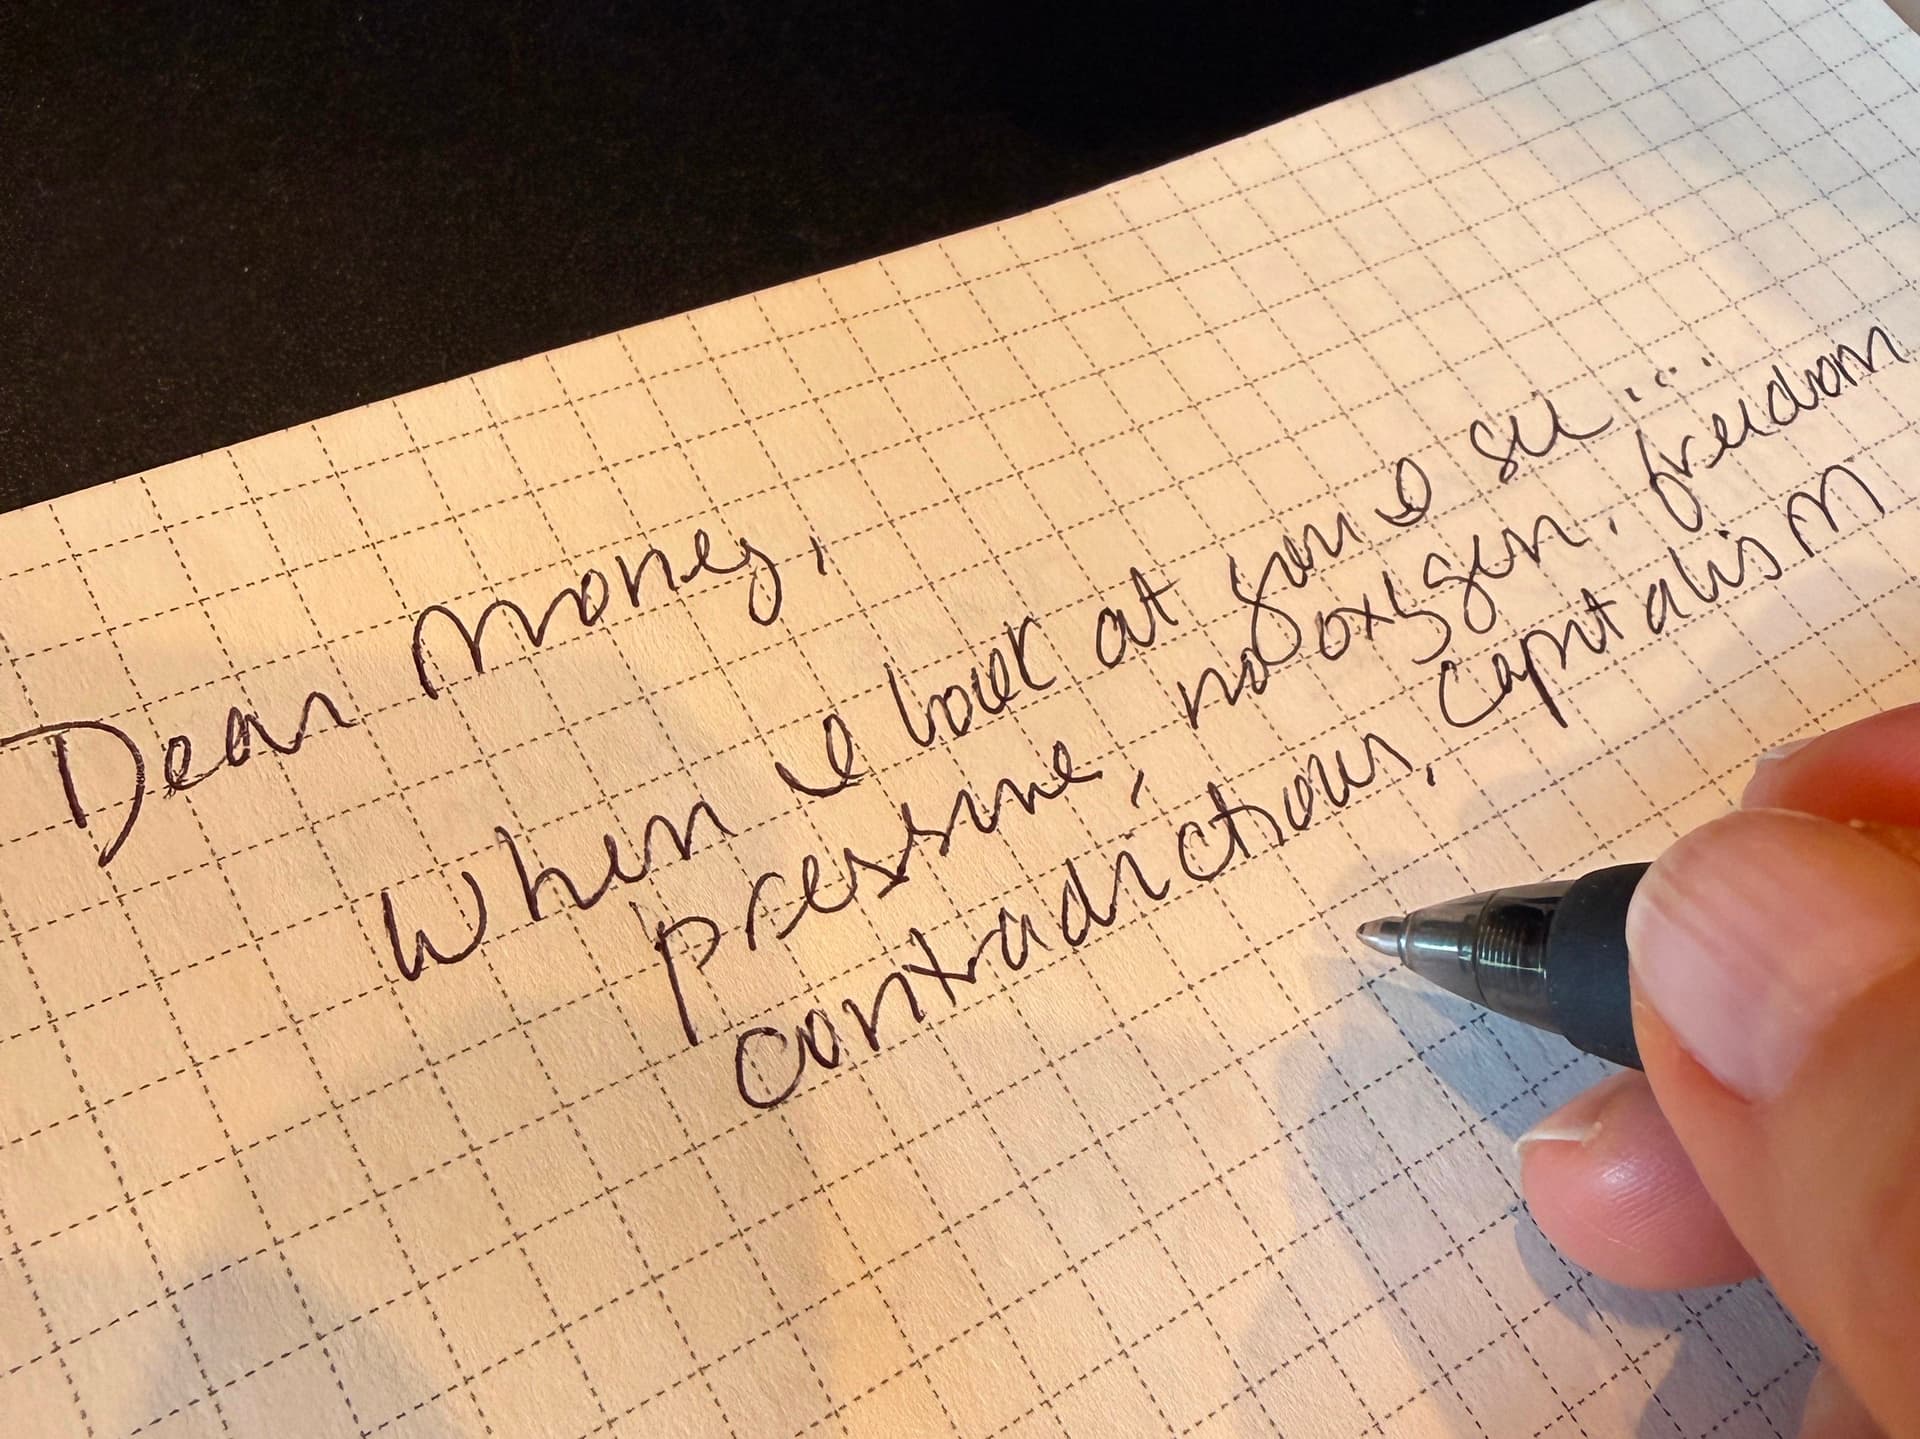 Dear Money,
When I look at you I see ...
pressure, no oxygen. freedom
contradictions, capitalism